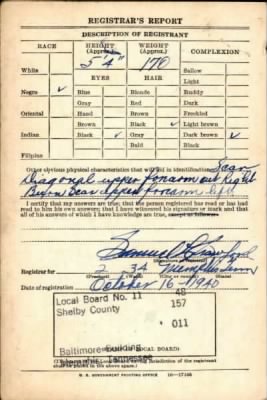 REGISTRAR'S REPORT
DESCRIPTION OF REGISTRANT
RACE HEIGHT (Approx.) WEIGHT (Approx.) COMPLEXION
5'4" 170
White Sallow
EYES HAIR Light
Negro ✓ Blue Blonde Ruddy
Gray Red Dark
Oriental Hazel Brown Freckled
Brown Black ✓ Light brown
Indian Black ✓ Gray Dark brown ✓
Bald Black
Filipino
Other obvious physical characteristics that will aid in identification Scar
Diagonal upper forearm out Right
Burn Scar upper forearm left
I certify that my answers are true; that the person registered has read or has had
read to him his own answers; that I have witnessed his signature or mark and that
all of his answers of which I have knowledge are true, except as follows:
Samuel Crawford
Registrar for 2 34 Memphis Tenn
Date of registration October 16-1940
Local Board No. 11 48
Shelby County 157
011
Baltimore Building
Memphis, Tennessee
U. S. GOVERNMENT PRINTING OFFICE 16-17105